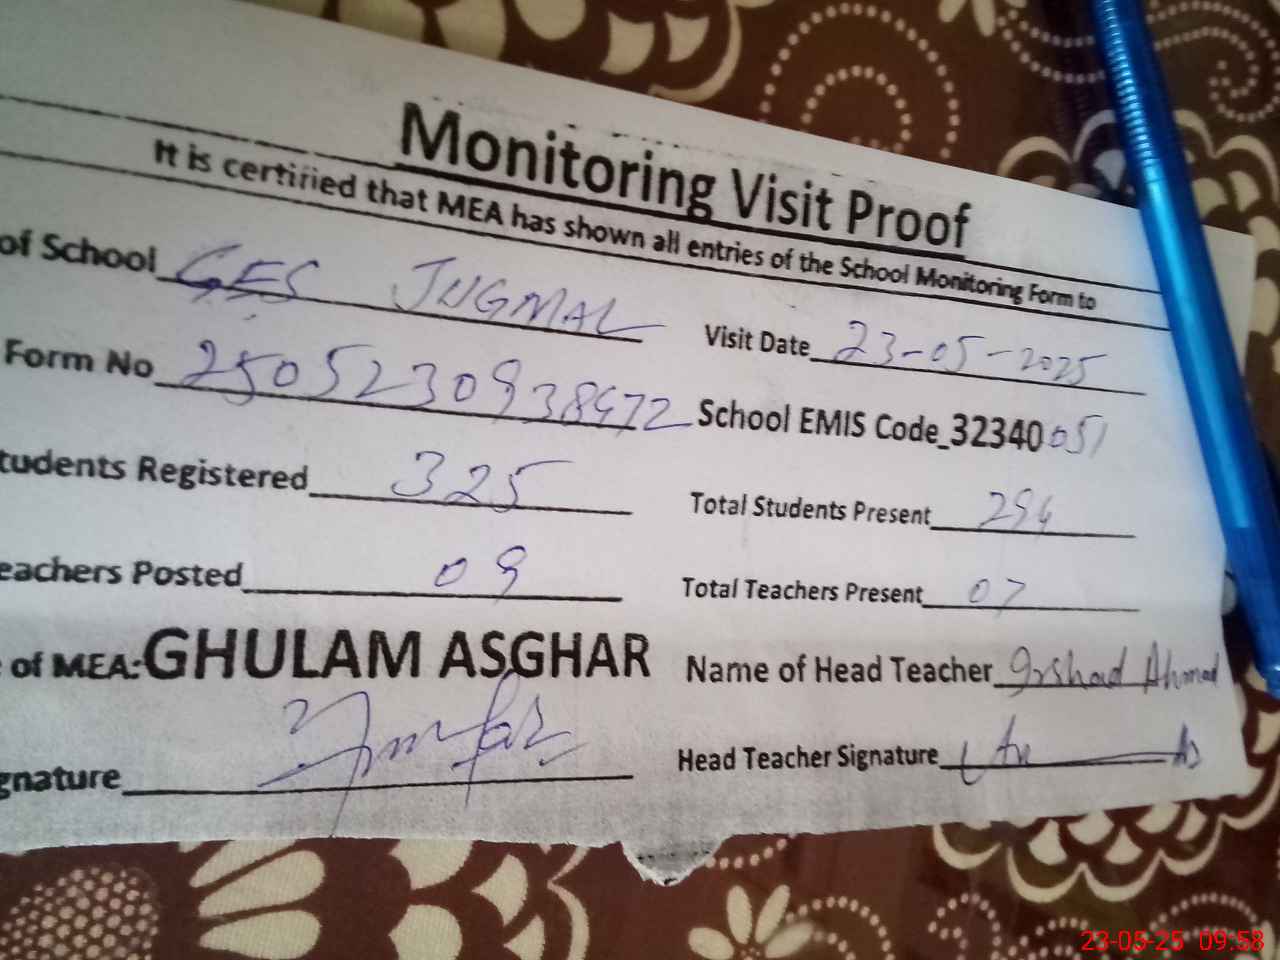 Monitoring Visit Proof
It is certified that MEA has shown all entries of the School Monitoring Form to
of School GES JUGMAL
Visit Date 23-05-2025
Form No 2505230938472
School EMIS Code_32340051
tudents Registered 325
Total Students Present 294
eachers Posted 09
Total Teachers Present 07
of MEA: GHULAM ASGHAR
Name of Head Teacher Irshad Ahmad
gnature
Head Teacher Signature
23-05-25 09:58